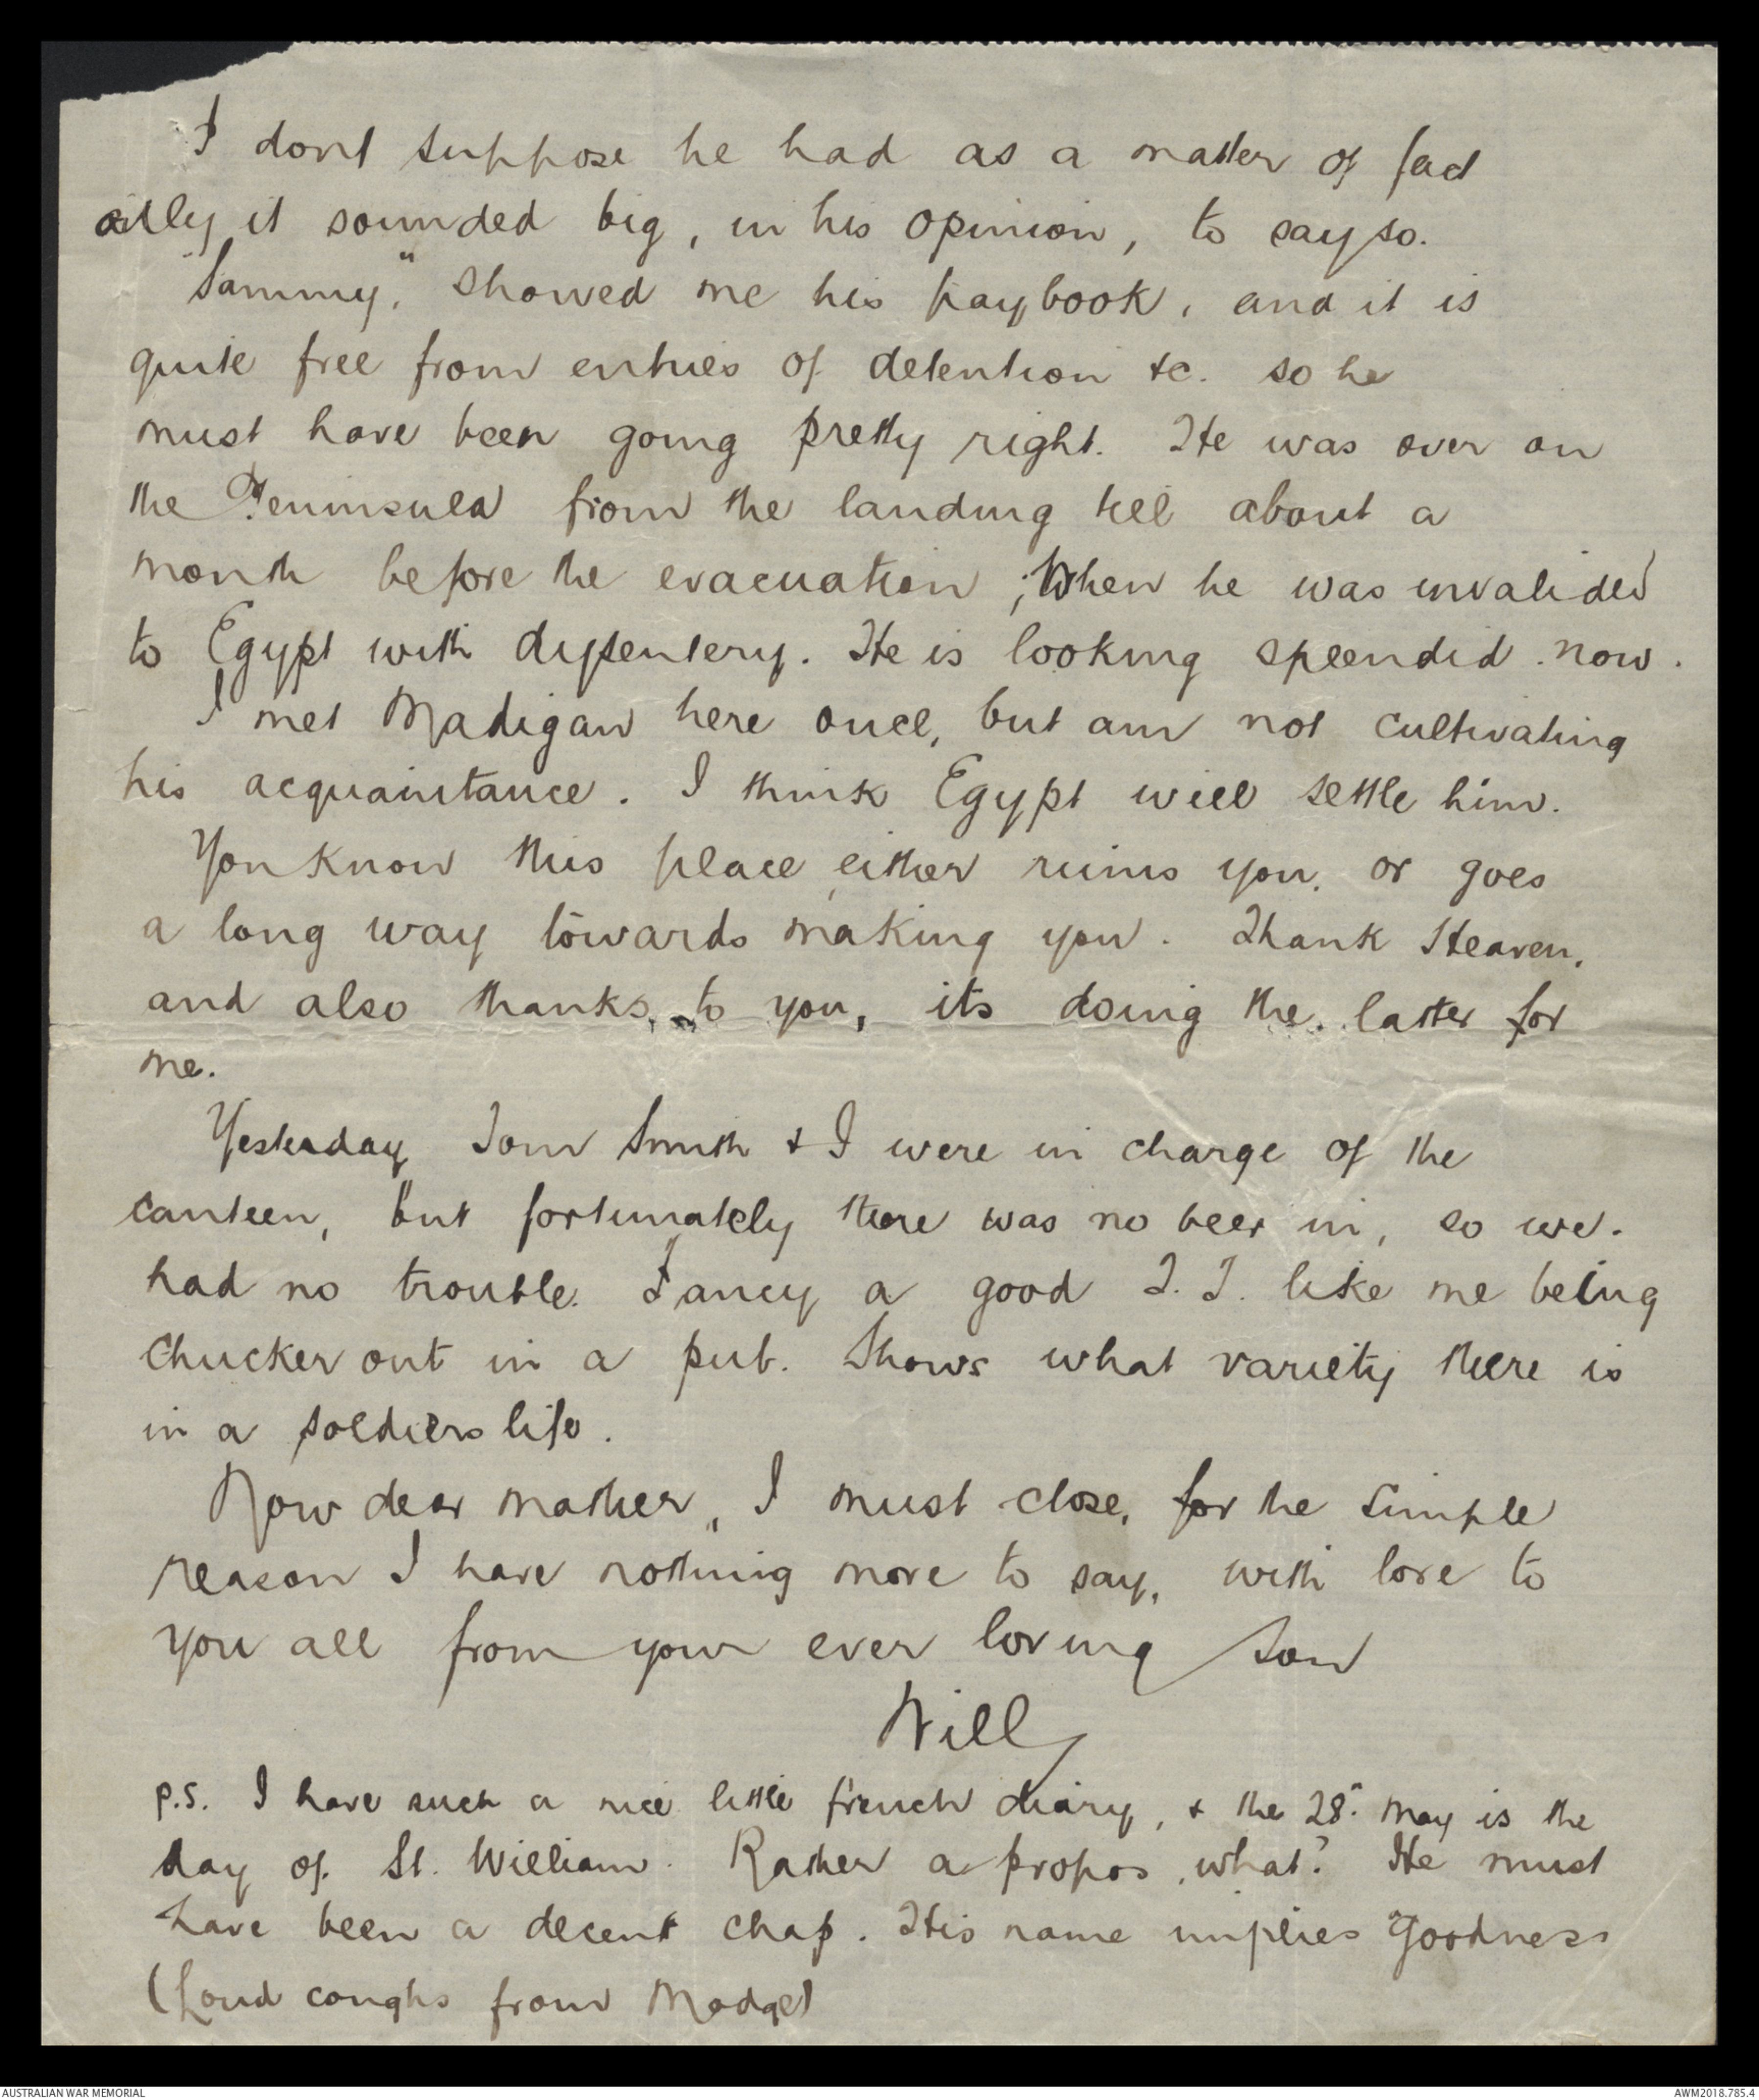 I dont suppose he had as a matter of fact
only it sounded big, in his opinion, to say so.
"Sammy," showed me his paybook, and it is
quite free from entries of detention &c. so he
must have been going pretty right. He was over on
the Peninsula from the landing till about a
month before the evacuation; When he was invalided
to Egypt with dysentery. He is looking splendid now.
I met Madigan here once, but am not cultivating
his acquaintance. I think Egypt will settle him.
You know this place either ruins you, or goes
a long way towards making you. Thank Heaven,
and also thanks, to you, its doing the latter for
me.
Yesterday Tom Smith & I were in charge of the
canteen, but fortunately there was no beer in, so we
had no trouble. Fancy a good T.T. like me being
chucker out in a pub. Shows what variety there is
in a soldiers life.
Now dear mother, I must close, for the simple
reason I have nothing more to say, with love to
you all from your ever loving son
Will
P.S. I have such a nice little french diary, & the 28th May is the
day of St. William. Rather a propos, what? He must
have been a decent chap. His name implies goodness
(Loud coughs from Madge)
AUSTRALIAN WAR MEMORIAL
AWM2018.785.4